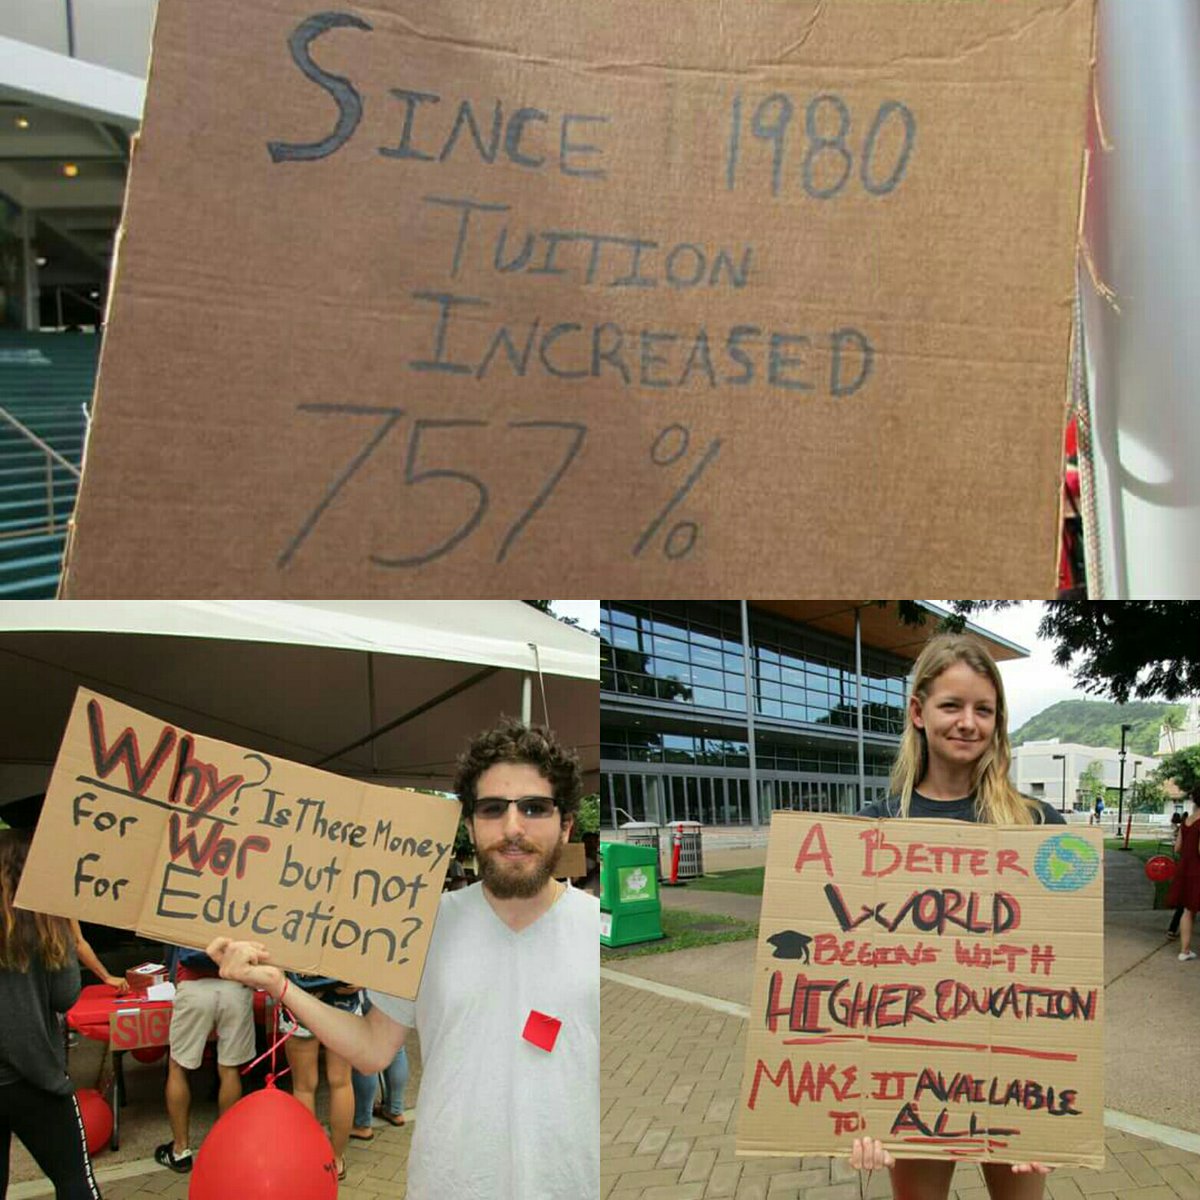 SINCE 1980
TUITION
INCREASED
757%
Why? Is There Money
for War but not
for Education?
SIG
A BETTER
WORLD
BEGINS WITH
HIGHER EDUCATION
MAKE IT AVAILABLE
TO ALL